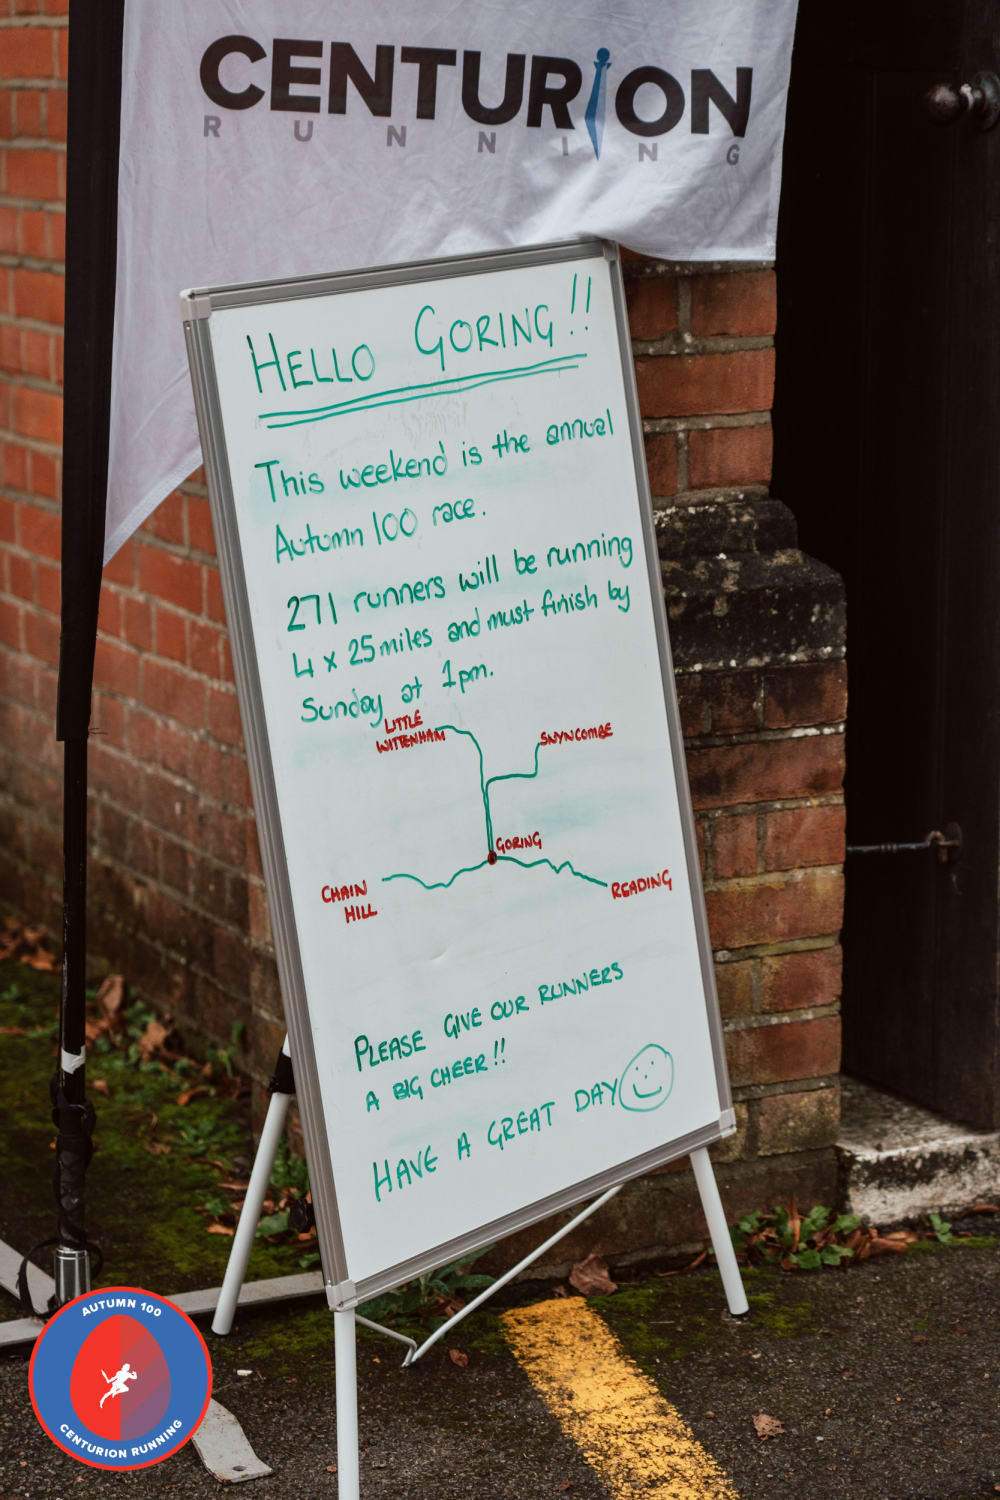 CENTURION
RUNNING
HELLO GORING!!
This weekend is the annual
Autumn 100 race.
271 runners will be running
4 x 25 miles and must finish by
Sunday at 1pm.
LITTLE
WITTENHAM
SWYNCOMBE
GORING
CHAIN
HILL
READING
PLEASE GIVE OUR RUNNERS
A BIG CHEER!!
HAVE A GREAT DAY
AUTUMN 100
CENTURION RUNNING